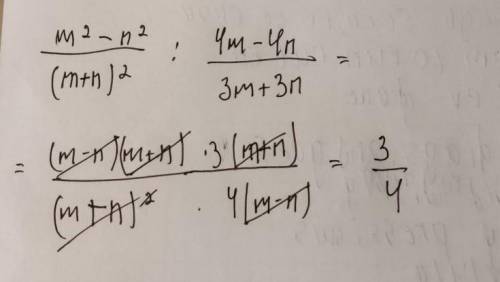 \frac{m^2 - n^2}{(m+n)^2} : \frac{4m - 4n}{3m + 3n} =
= \frac{(m-n)(m+n) \cdot 3 \cdot (m+n)}{(m+n)^2 \cdot 4(m-n)} = \frac{3}{4}